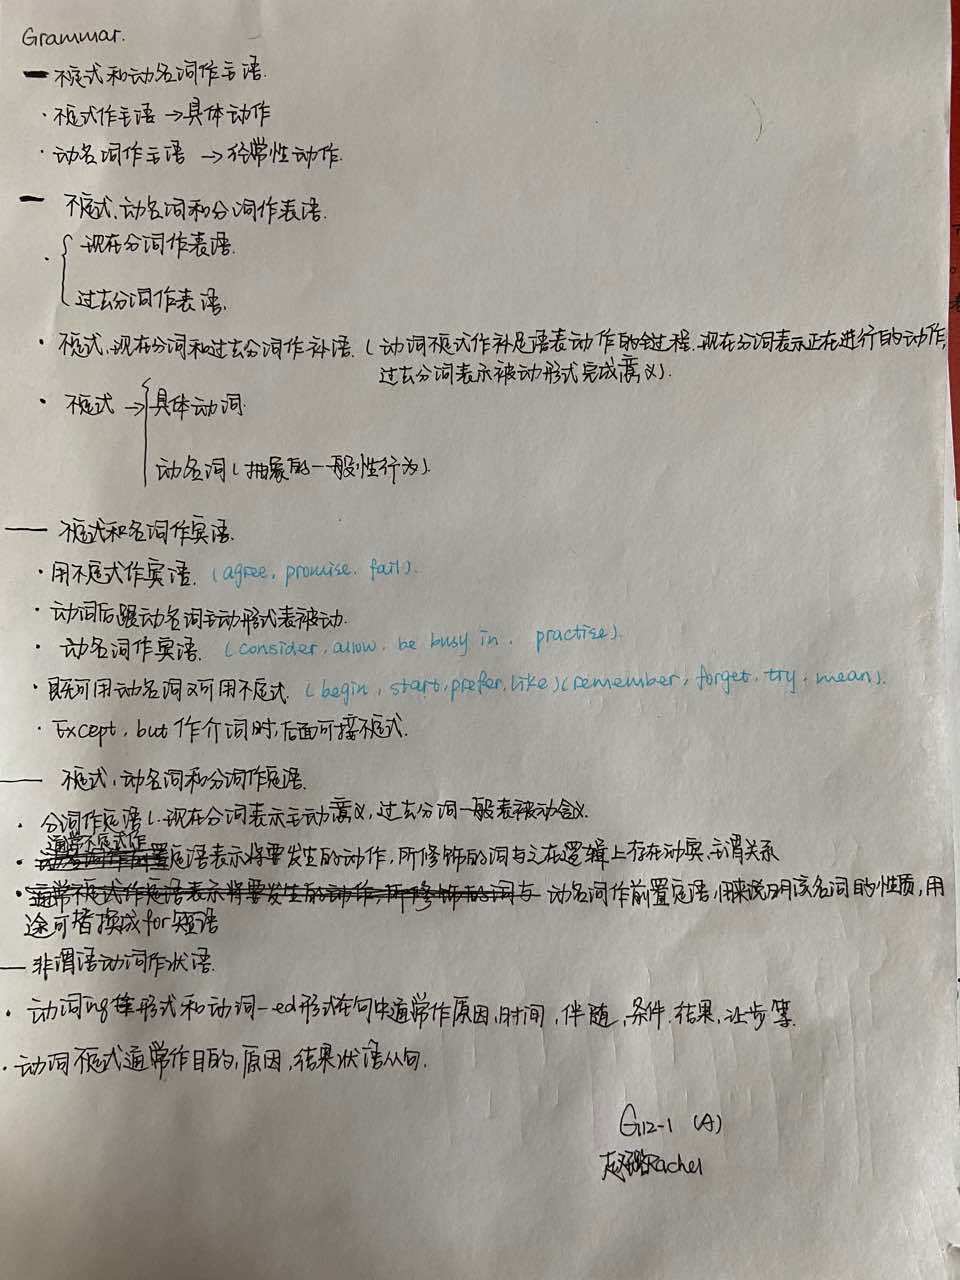 Grammar.
一 不定式和动名词作主语.
· 不定式作主语 → 具体动作
· 动名词作主语 → 经常性动作.
一 不定式、动名词和分词作表语.
· { 现在分词作表语.
过去分词作表语.
· 不定式、现在分词和过去分词作补语. (动词不定式作补足语表动作的全过程. 现在分词表示正在进行的动作,
过去分词表示被动形式完成意义).
· 不定式 → { 具体动词
动名词(抽象的一般性行为).
一 不定式和名词作宾语.
· 用不定式作宾语. (agree, promise, fail).
· 动词后跟动名词主动形式表被动.
· 动名词作宾语. (consider, allow, be busy in, practise).
· 既可用动名词又可用不定式. (begin, start, prefer, like) (remember, forget, try, mean).
· Except, but 作介词时, 后面可接不定式.
一 不定式, 动名词和分词作定语.
· 分词作定语(. 现在分词表示主动意义, 过去分词一般表被动含义.
通常不定式作
· 定语表示将要发生的动作, 所修饰的词与之在逻辑上存在动宾、主谓关系
· 通常不定式作定语表示将要发生的动作, 所修饰的词与 动名词作前置定语, 用来说明该名词的性质, 用
途可替换成for短语
一 非谓语动词作状语.
· 动词ing 形式和动词-ed形式在句中通常作原因, 时间, 伴随, 条件, 结果, 让步等.
· 动词不定式通常作目的, 原因, 结果状语从句.
G12-1 (A)
Rachel